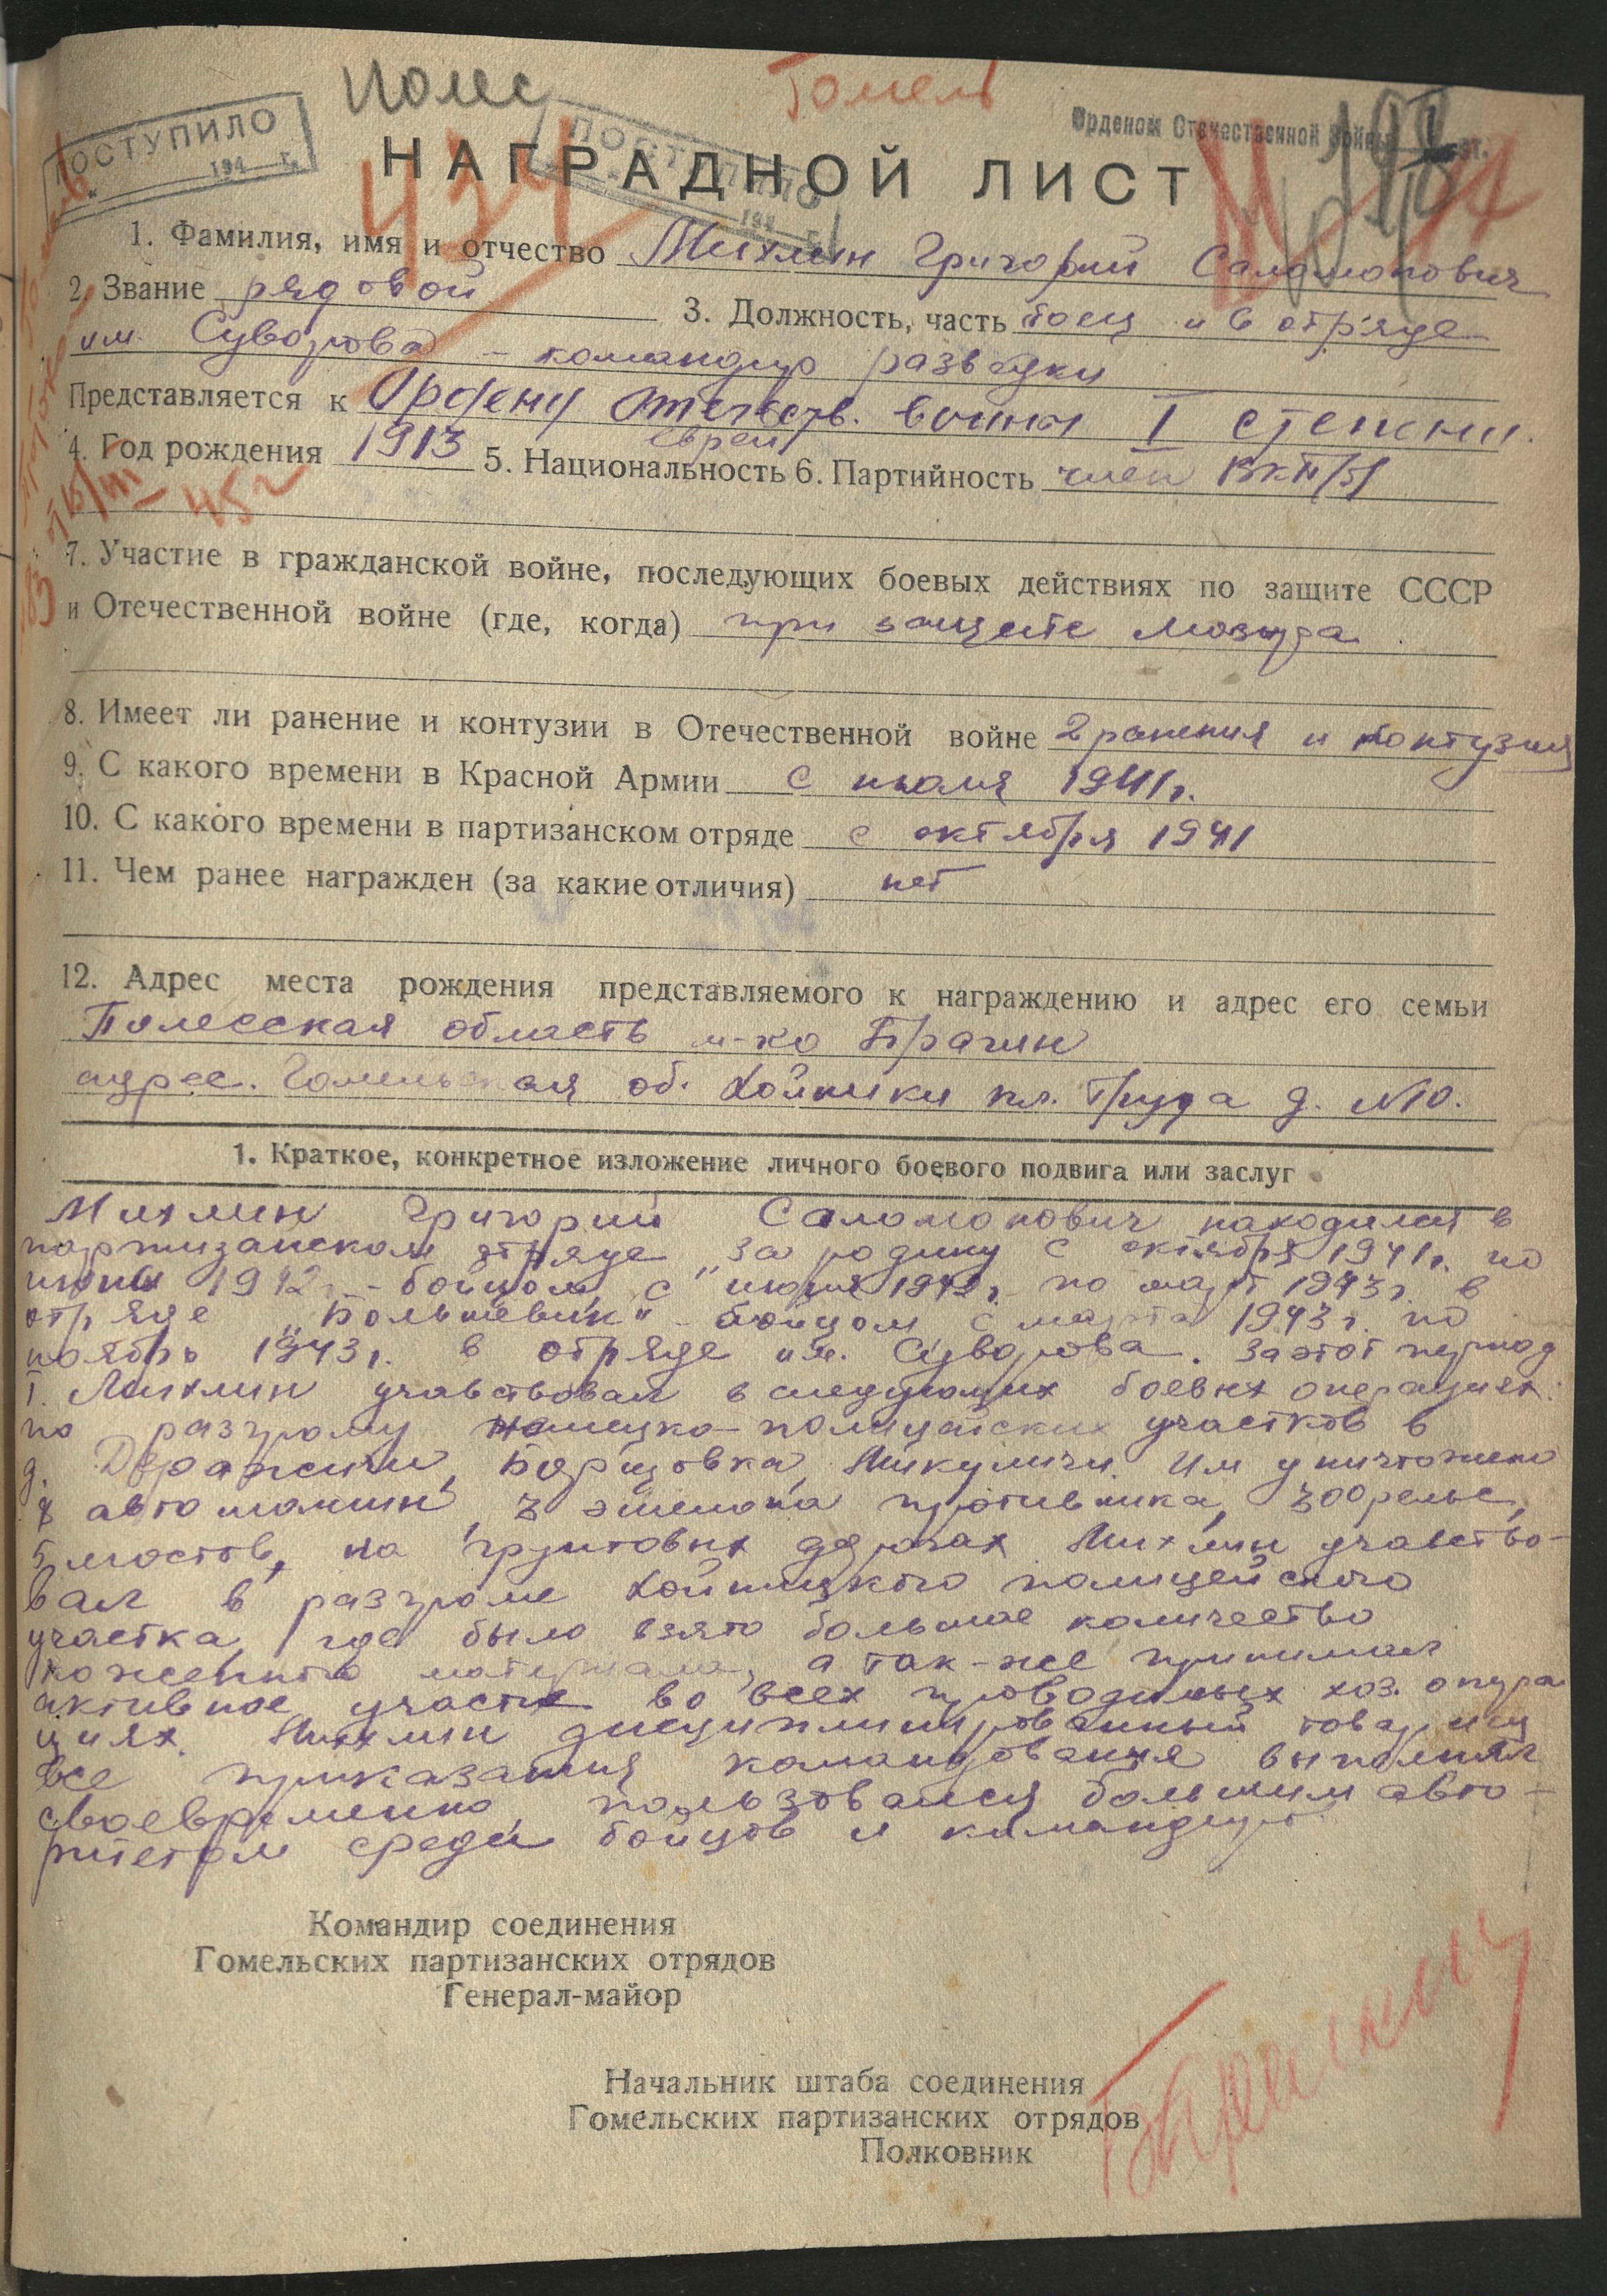 Полес Гомель
ПОСТУПИЛО
194 г.
ПОСТУПИЛО
194 г.
Орденом Отечественной Войны ст.
НАГРАДНОЙ ЛИСТ
1. Фамилия, имя и отчество Михлин Григорий Саломонович
2. Звание рядовой 3. Должность, часть боец и в отряде
им. Суворова – командир разведки
Представляется к Ордену Отечеств. войны I степени.
4. Год рождения 1913 5. Национальность еврей 6. Партийность член ВКП/б/
7. Участие в гражданской войне, последующих боевых действиях по защите СССР
и Отечественной войне (где, когда) при защите Мозыря
8. Имеет ли ранение и контузии в Отечественной войне 2 ранения и контузия
9. С какого времени в Красной Армии с июля 1941 г.
10. С какого времени в партизанском отряде с октября 1941
11. Чем ранее награжден (за какие отличия) нет
12. Адрес места рождения представляемого к награждению и адрес его семьи
Полесская область м-ко Брагин
адрес. Гомельская об. Хойники пл. Труда д. №10.
1. Краткое, конкретное изложение личного боевого подвига или заслуг
Михлин Григорий Саломонович находился в
партизанском отряде „За родину с октября 1941 г. по
июнь 1942 г. – бойцом, с июня 1942 г. по март 1943 г. в
отряде „Большевик" – бойцом с марта 1943 г. по
ноябрь 1943 г. в отряде им. Суворова. За этот период
т. Михлин учавствовал в следующих боевых операциях:
по разгрому немецко-полицайских участков в
д. Деражичи, Борщовка, Микуличи. Им уничтожено
автомашин, 3 эшелона противника, 300 рельс,
5 мостов, на грунтовых дорогах Михлин учавство-
вал в разгроме Хойникского полицейского
участка, где было взято большое количество
кожевного материала, а так-же принимал
активное участие во всех проводимых хоз. опера
циях. Михлин дисциплинированный товарищ
все приказания командования выполнял
своевременно, пользовался большим авто-
ритетом среди бойцов и командиров
Командир соединения
Гомельских партизанских отрядов
Генерал-майор
Начальник штаба соединения
Гомельских партизанских отрядов
Полковник